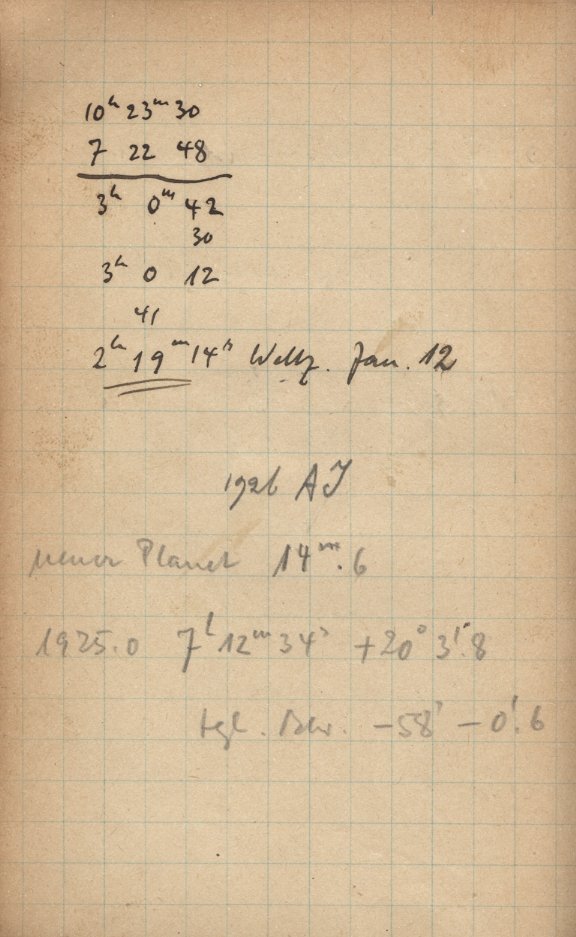 10ʰ 23ᵐ 30
7 22 48
3ʰ 0ᵐ 42
30
3ʰ 0 12
41
2ʰ 19ᵐ 14ˢ Weltz. Jan. 12
1926 AJ
neuer Planet 14ᵐ.6
1925.0 7ʰ 12ᵐ 34ˢ +20° 3'.8
tgl. Bew. −58ˢ −0'.6